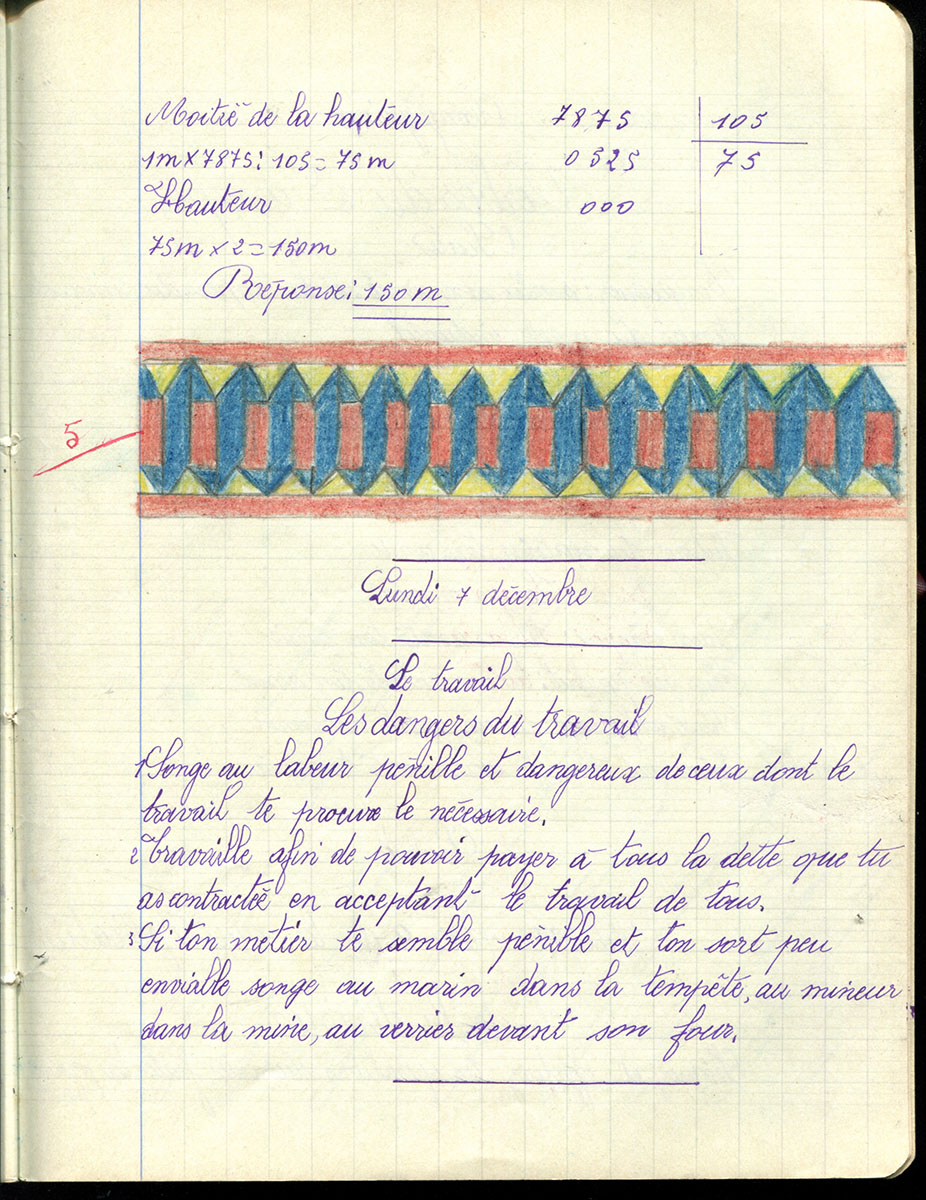 Moitié de la hauteur 7875 | 105
1m x 7875 : 105 = 75m 0525 | 75
Hauteur 000
75m x 2 = 150m
Réponse : 150 m
5
Lundi 7 décembre
Le travail
Les dangers du travail
1 Songe au labeur penille et dangereux de ceux dont le
travail te procure le nécessaire.
2 Travaille afin de pouvoir payer à tous la dette que tu
as contractée en acceptant le travail de tous.
3 Si ton metier te semble pénible et ton sort peu
enviable songe au marin dans la tempête, au mineur
dans la mine, au verrier devant son four.